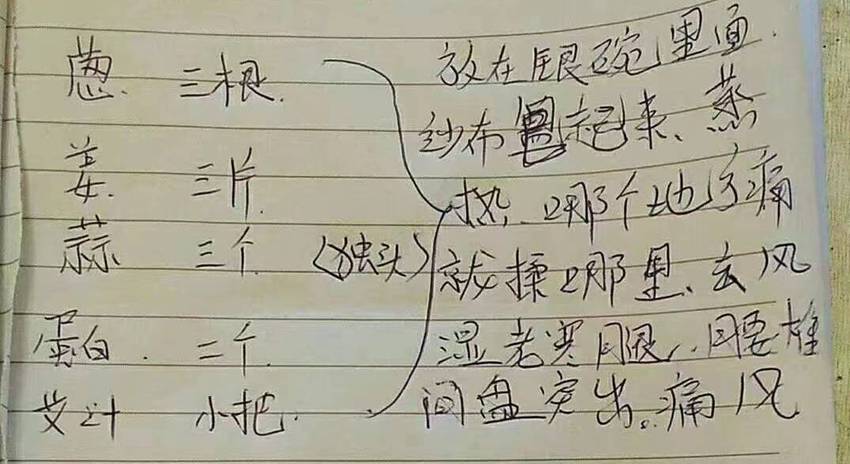 葱. 三根.
姜. 三片.
蒜 三个 (独头)
蛋白. 三个.
艾叶 小把.
放在银碗里面.
纱布包起来、蒸
热、哪个地方痛
就揉哪里、去风
湿老寒腿、腰椎
间盘突出。痛风